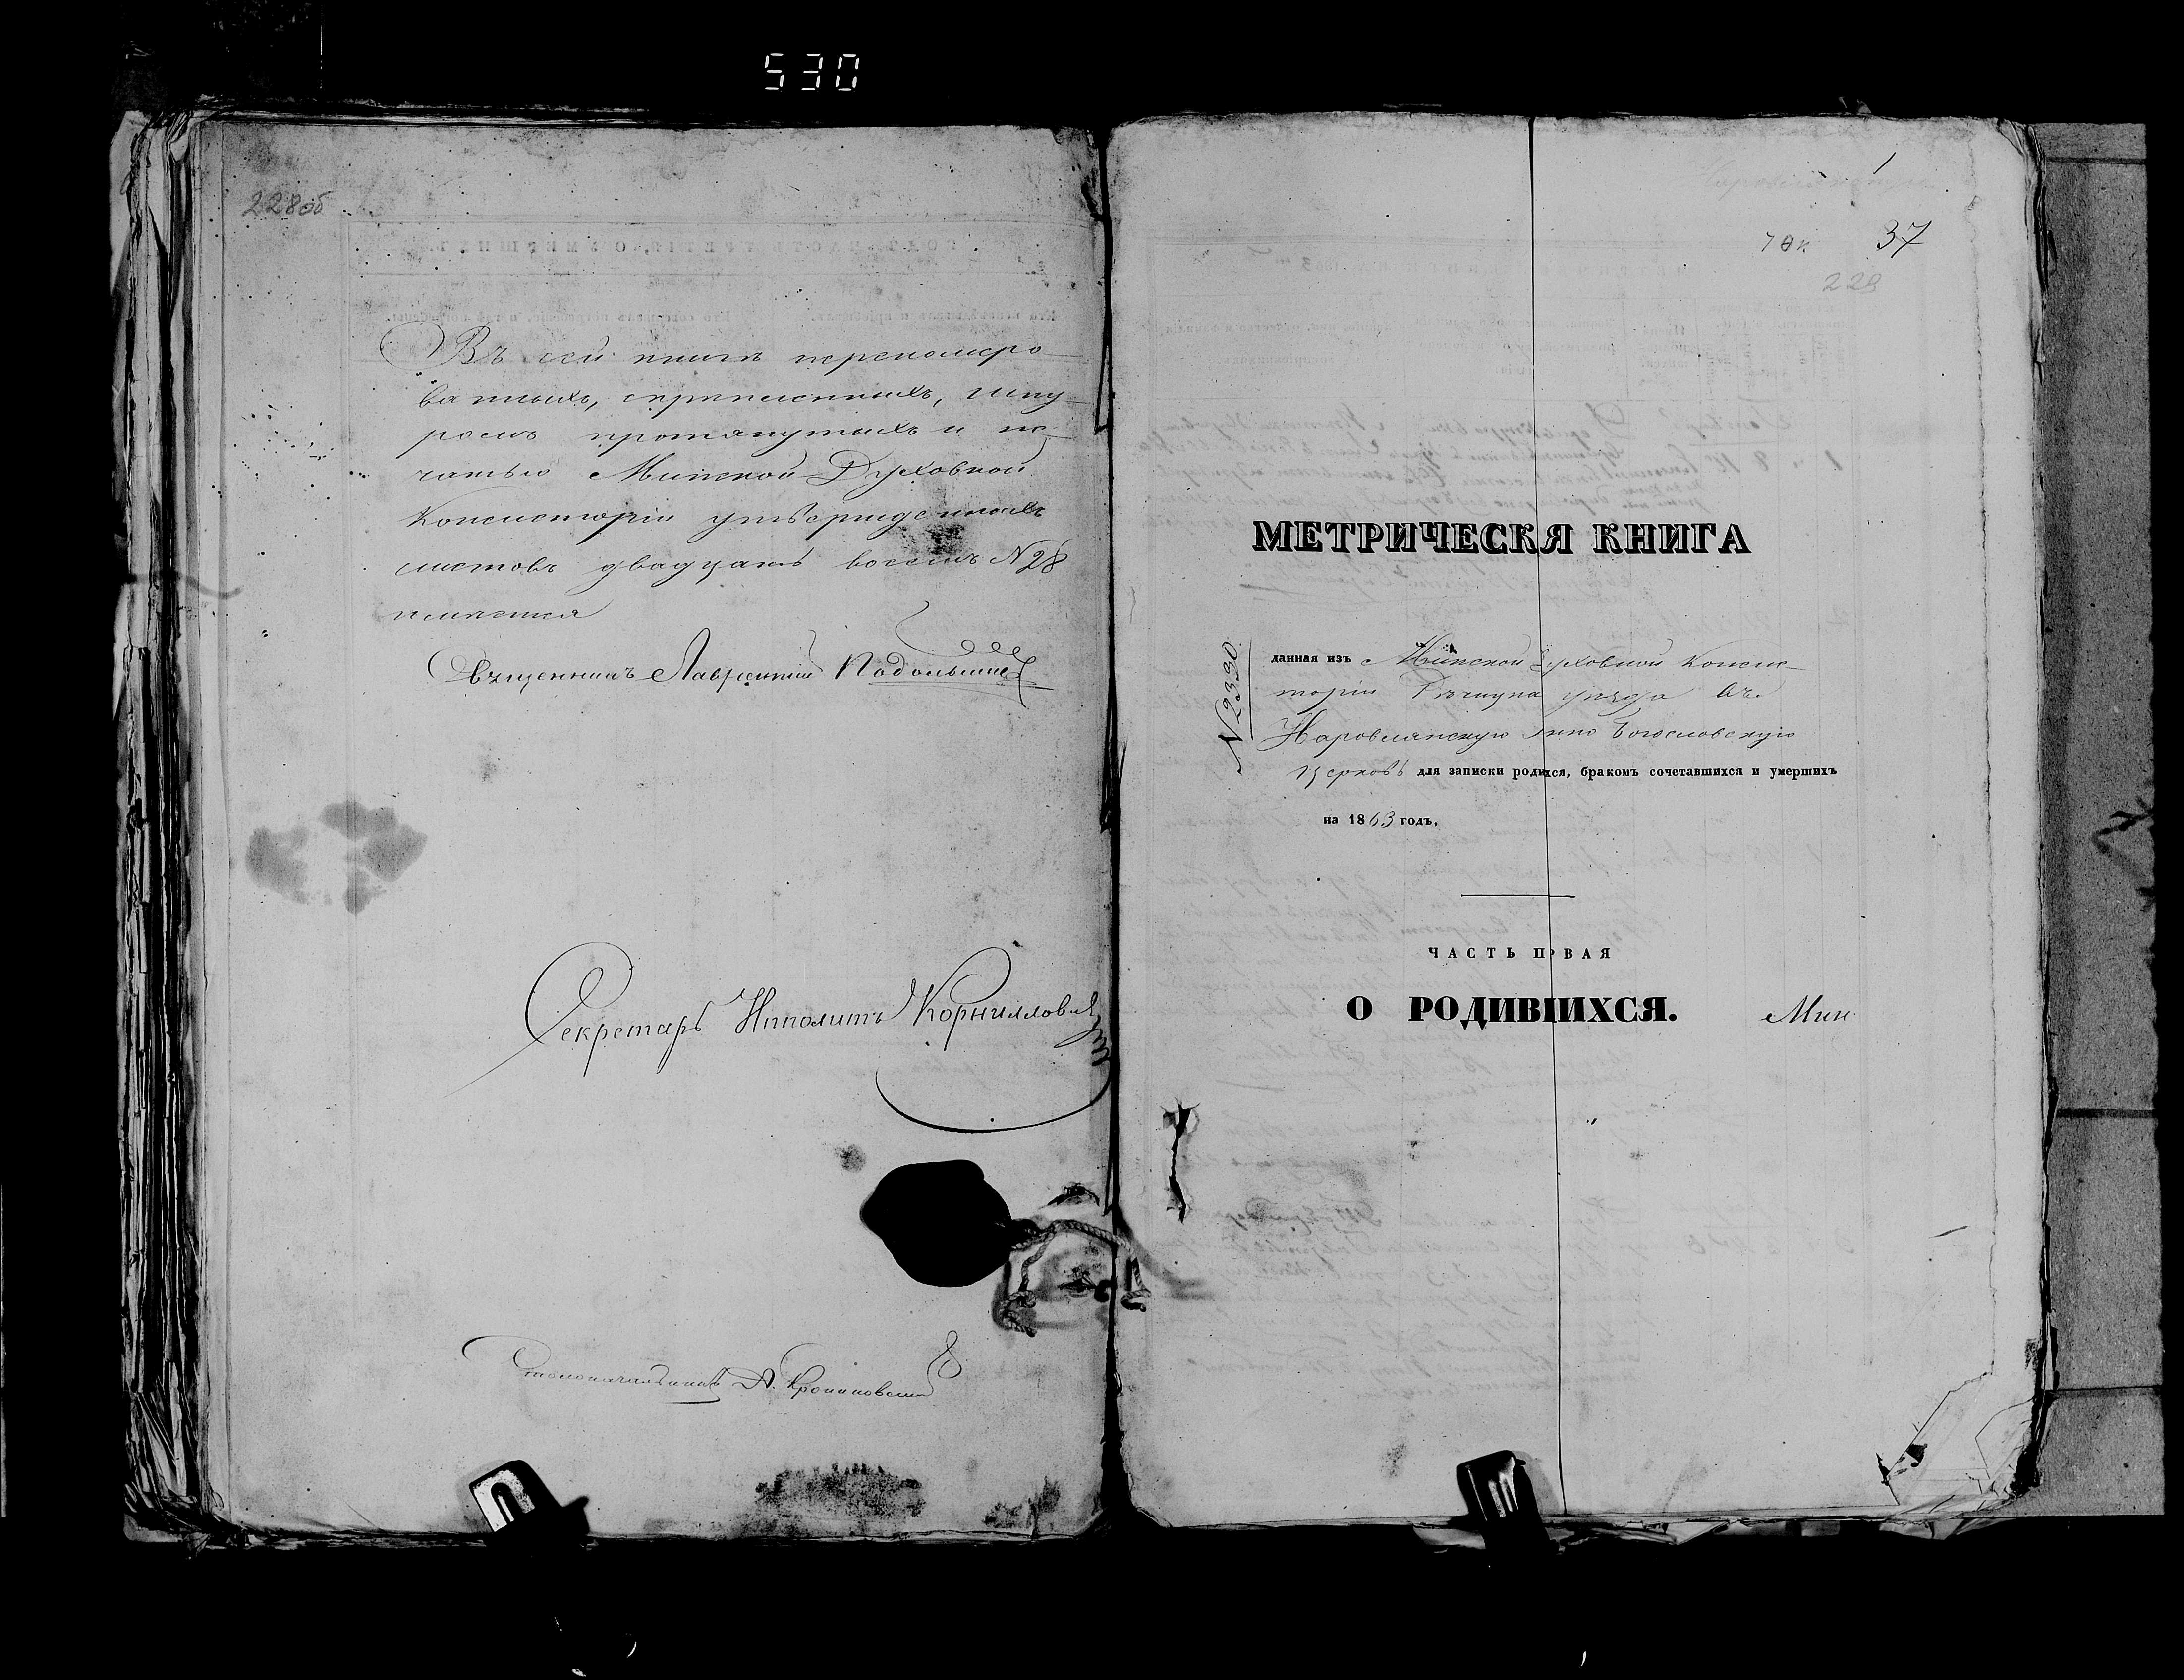 530
228об
Въ сей книгѣ перономеро-
ванныхъ, скрѣпленныхъ, шну-
ромъ протянутыхъ и пе-
чатью Минской Духовной
Консисторіи утвержденныхъ
листовъ двадцать восемь N 28
имѣется
Священникъ Лаврентій
Секретарь Иполитъ Корниллович
Столоначальникъ А.
1
37
229
МЕТРИЧЕСКЯ КНИГА
N 2330
данная изъ Минской Духовной Консис-
торіи Рѣчицка уѣзда въ
Наровлянскую Іоано Богословскую
церковь для записки родихся, бракомъ сочетавшихся и умершихъ
на 1863 годъ.
ЧАСТЬ ПРВАЯ
О РОДИВШИХСЯ.
Мин